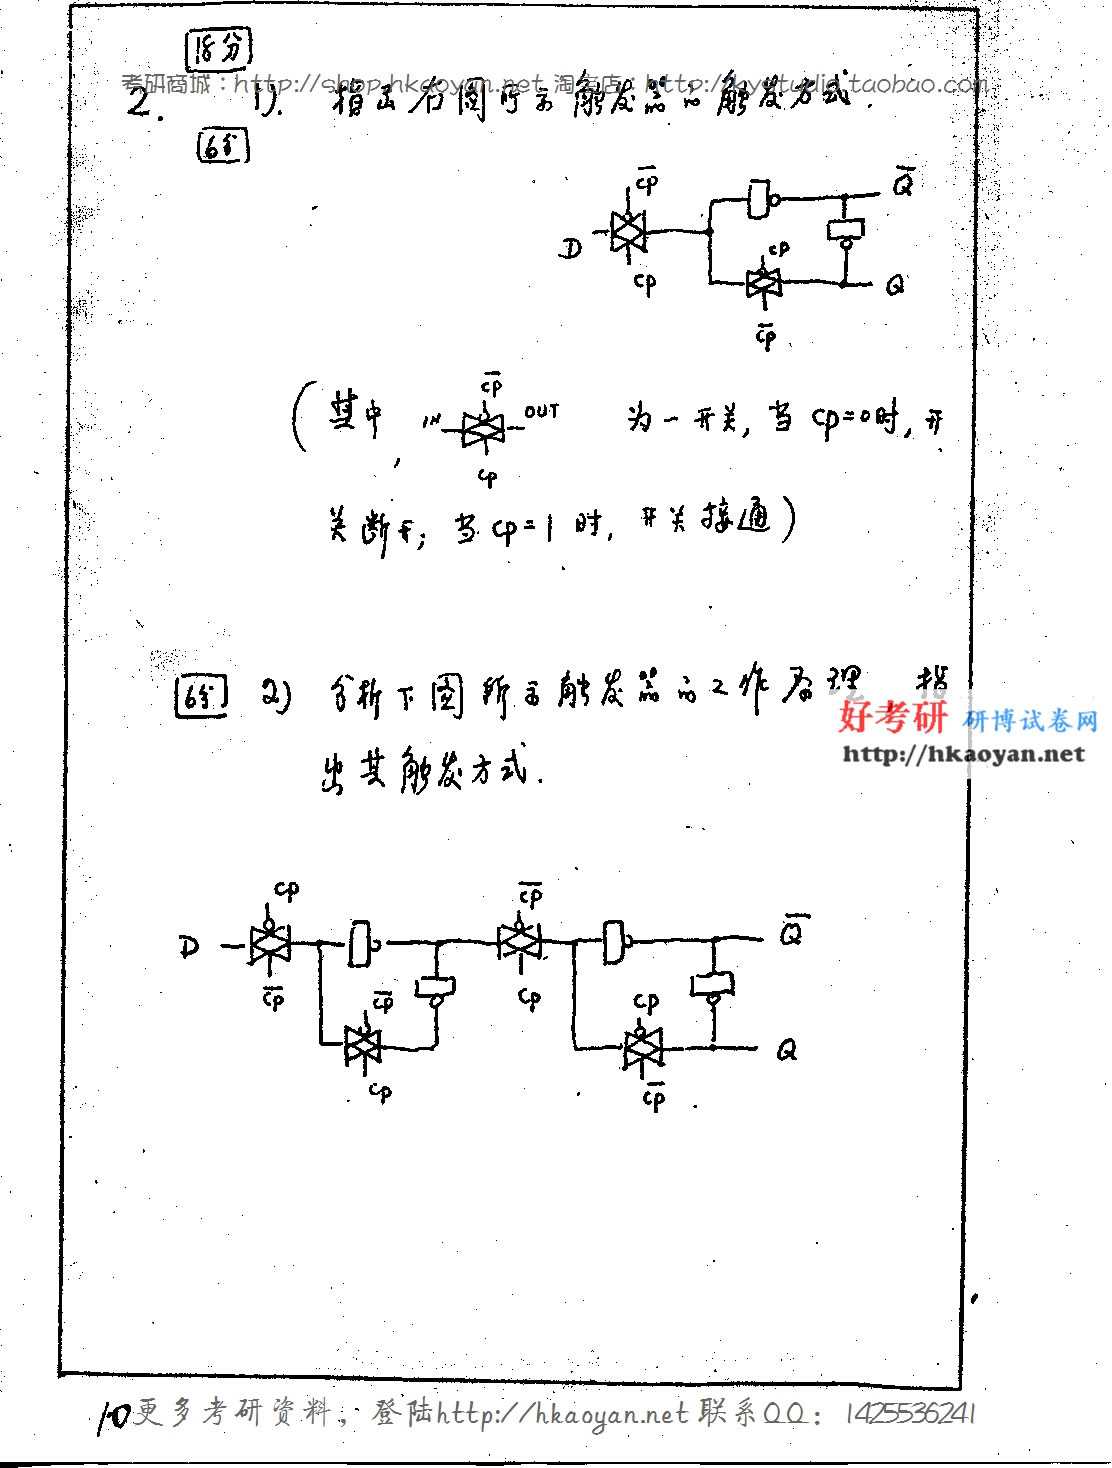 18分
考研商城：http://shop.hkaoyan.net 淘宝店：http://kystudio.taobao.com
2. 1). 指出右图所示触发器的触发方式.
6分
C̅P̅ Q̅
D CP CP Q
C̅P̅
(其中, IN C̅P̅ CP OUT 为一开关, 当 CP=0时, 开
关断开; 当 CP=1 时, 开关接通)
6分 2) 分析下图所示触发器的工作原理 指
好考研 研博试卷网
http://hkaoyan.net
出其触发方式.
CP C̅P̅
D Q̅
C̅P̅ C̅P̅ CP CP
Q
CP C̅P̅
10 更多考研资料，登陆http://hkaoyan.net 联系QQ：1425536241